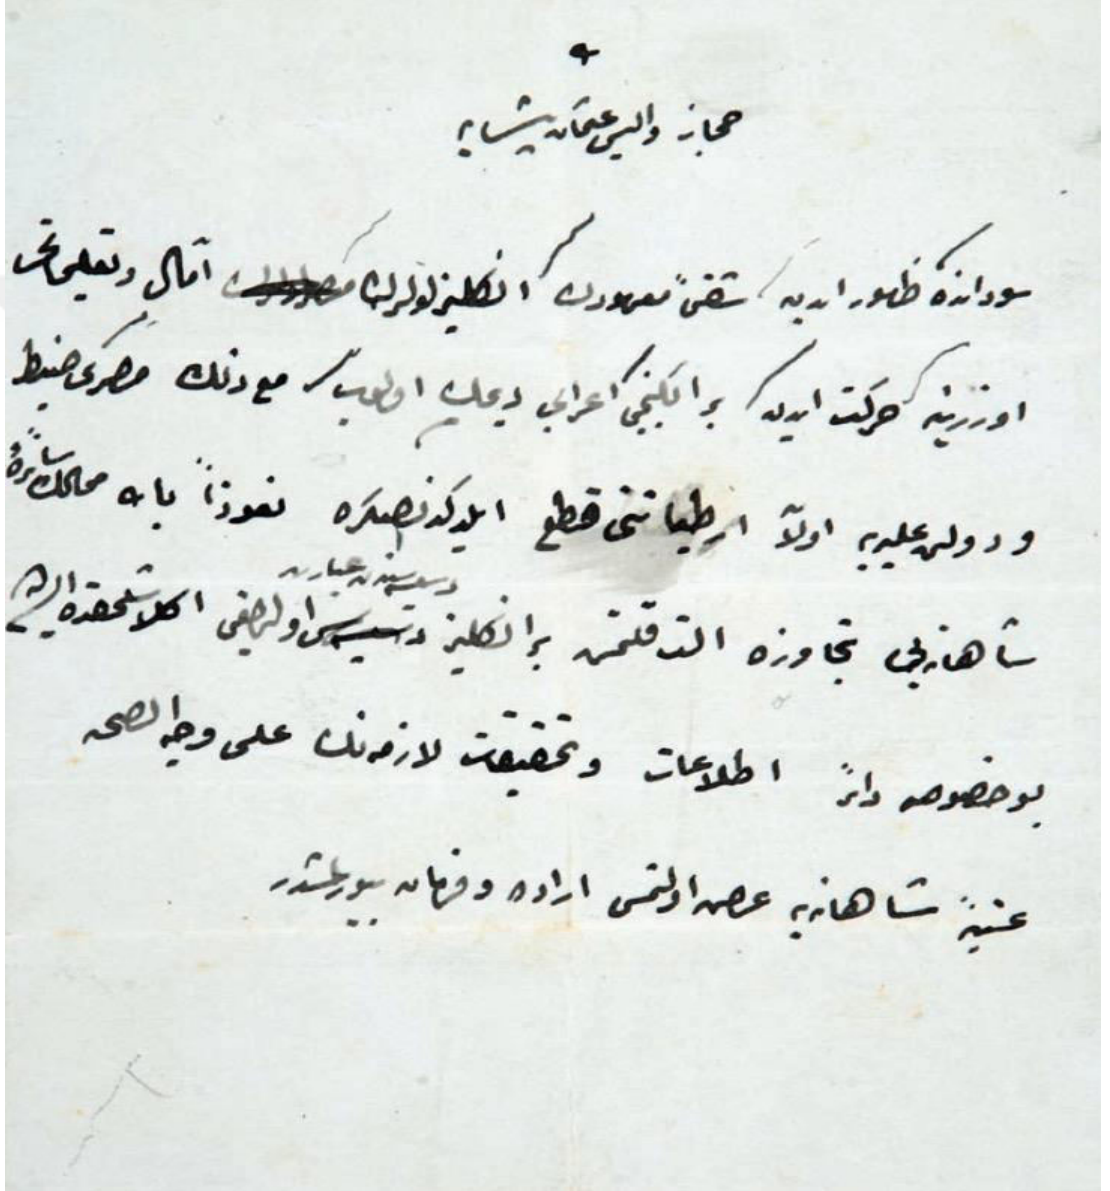 حجاز والیسی عثمان پاشایه
سودانده ظهور ایدن شقئ معهودك انكلیزلولرك آمال و تعلیماتی
اوزرینه حركت ایدن بر ایكنجی اعرابی دیمك اولوب مع ذلك مصری ضبط
و دولت علیه اولا ارتباطاتنی قطع ایلدكدنصكره نعوذا بالله ممالك سائرهٔ
شاهانه‌یی تجاوزه آلت قلنمش بر انكلیز دسیسه‌سندن عبارت اولدیغی اكلاشلمقده
بو خصوصه دائر اطلاعات و تحقیقات لازمه‌نك علی وجه الصحه
عتبهٔ شاهانه‌یه عرض اولنمسی اراده و فرمان بیورلمشدر